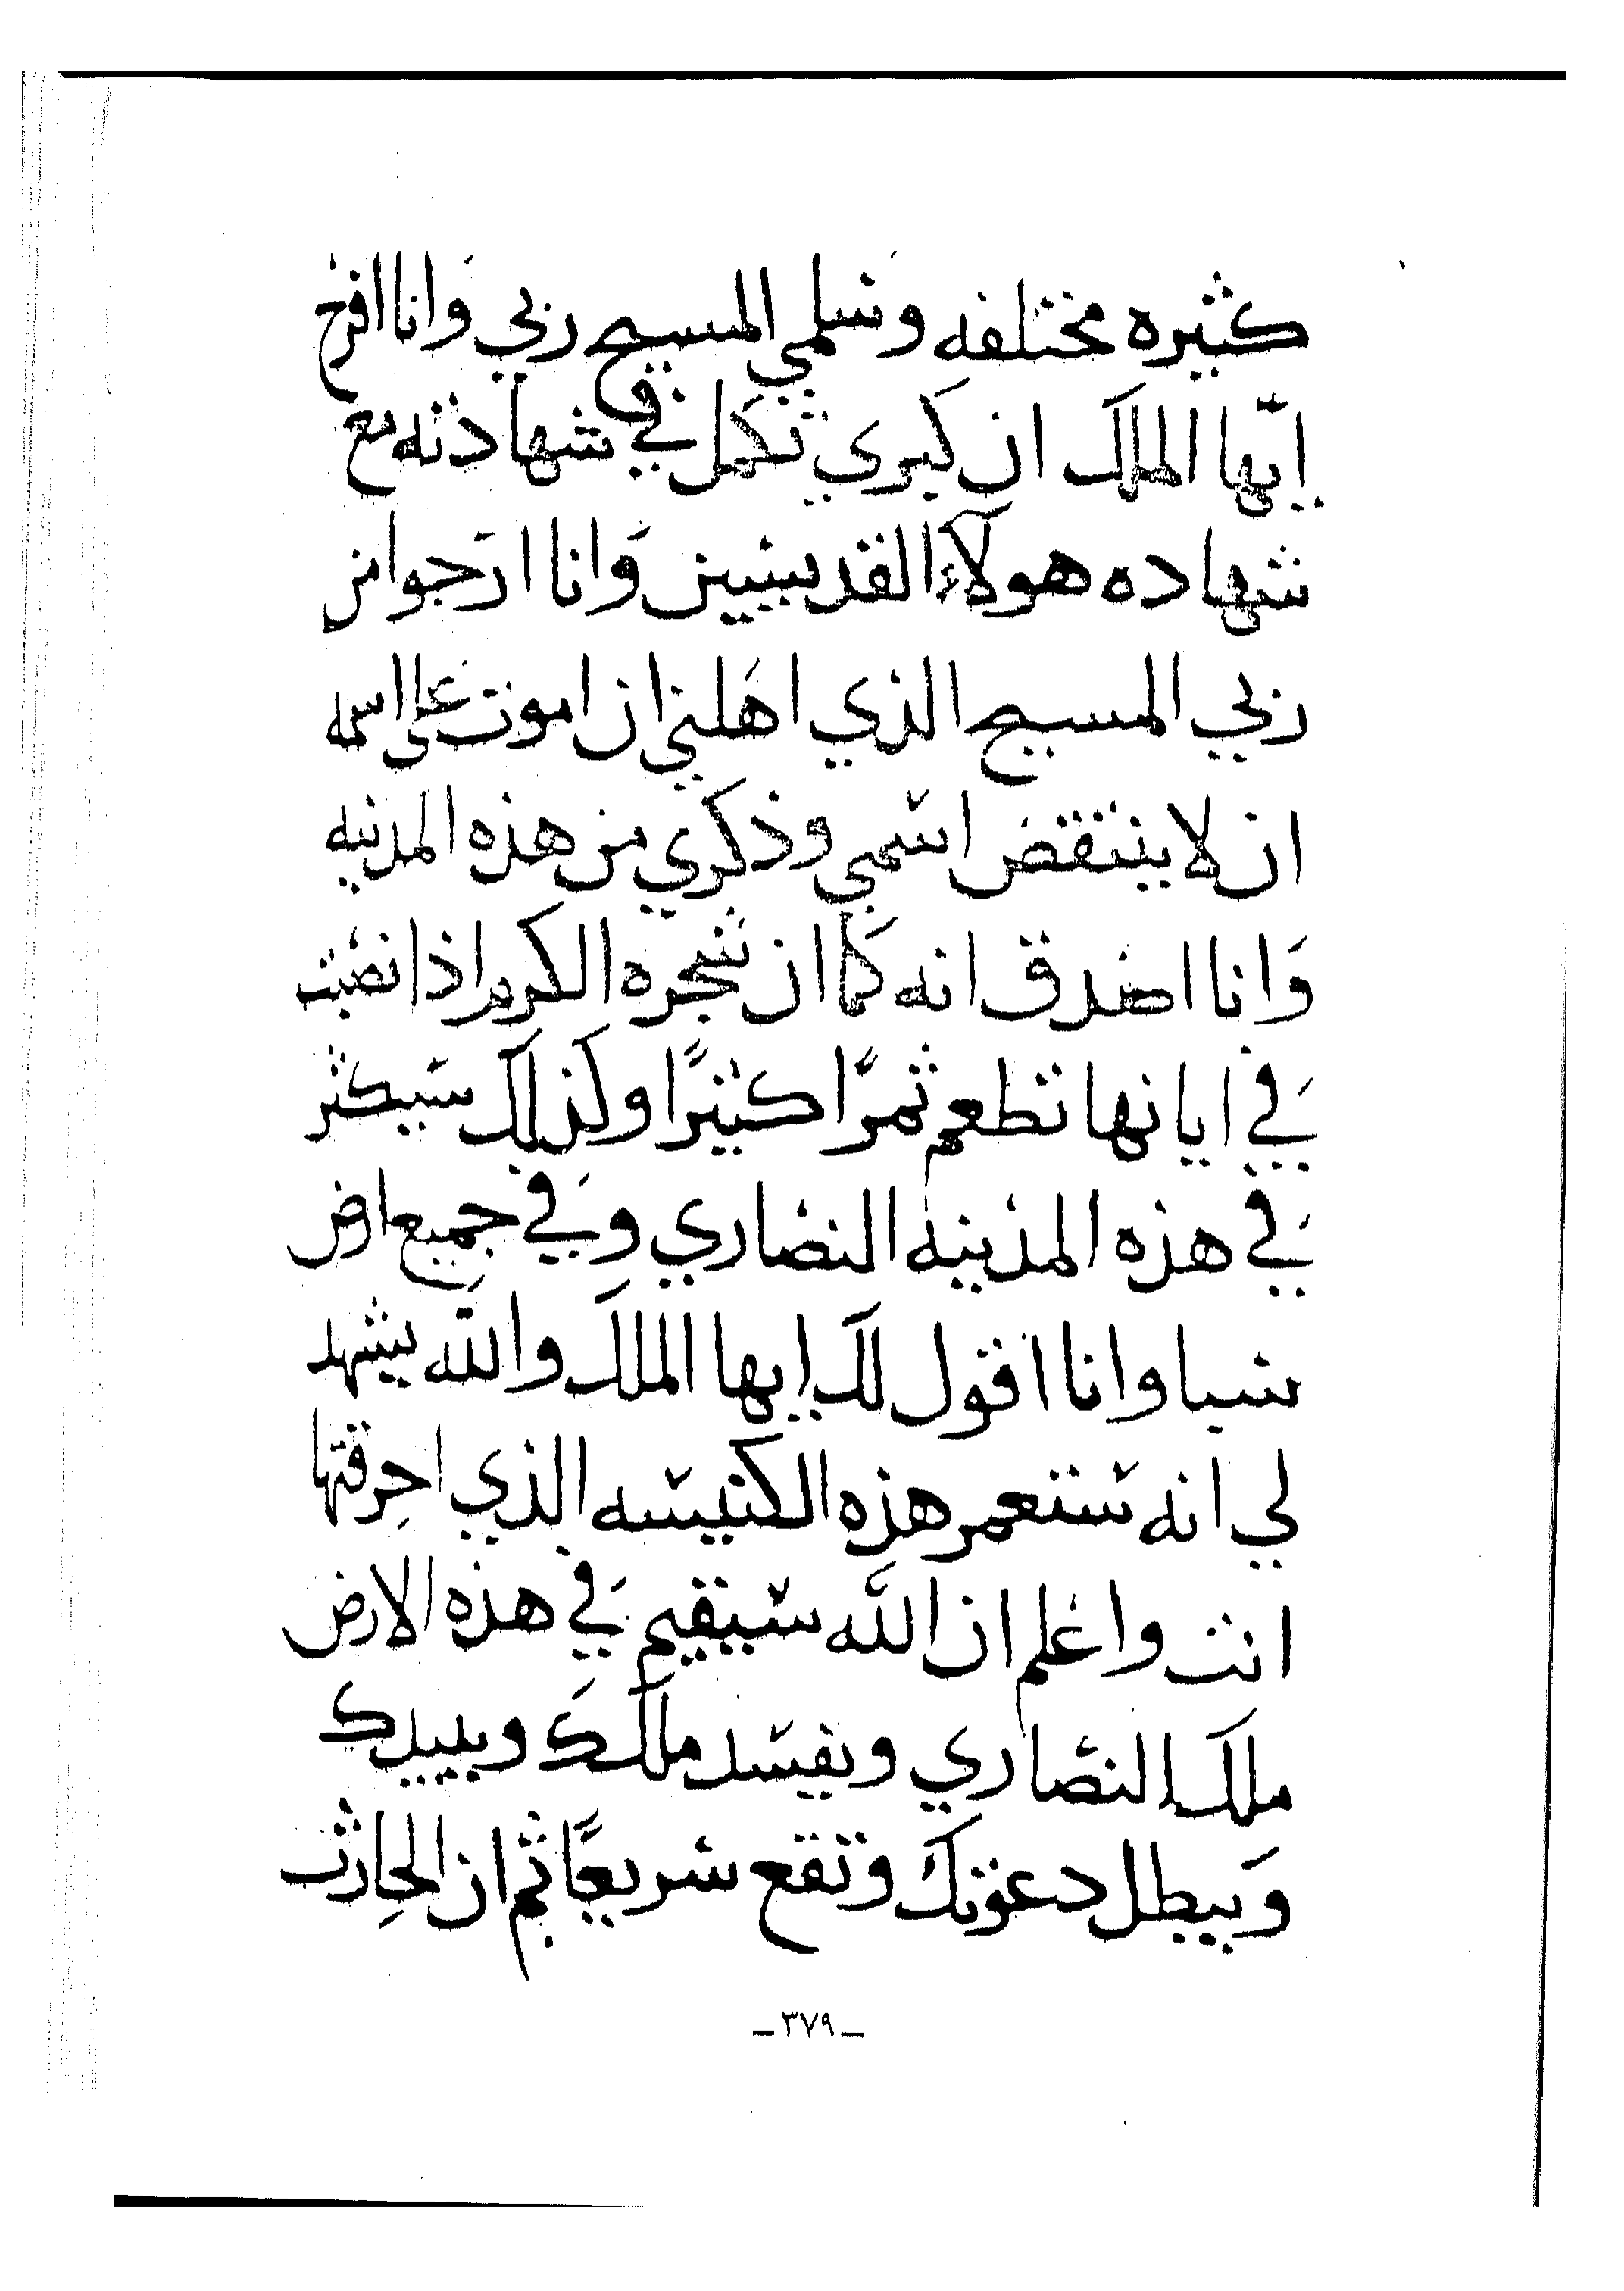 كثيره مختلفه وسلمي المسيح ربي وانا افرح
ايها الملك ان كبري تكمل في شهادته مع
شهاده هولاء القديسين وانا ارجوا من
ربي المسيح الذي اهلني ان اموت على اسمه
ان لا ينتقض اسمي وذكري من هذه المدينه
وانا اصدق انه كما ان شجره الكرم اذا نصبت
في ايانها تطعم ثمرًا كثيرًا وكذلك سيكثر
في هذه المدينه النصاري وفي جميع ارض
سبا وانا اقول لك ايها الملك والله يشهد
لي انه ستعمر هذه الكنيسه الذي احرقتها
انت واعلم ان الله سيقيم في هذه الارض
ملك النصاري ويفسد ملكك ويبيدك
ويبطل دعوتك وتقع سريعًا ثم ان الحارث
ـ ٣٧٩ ـ